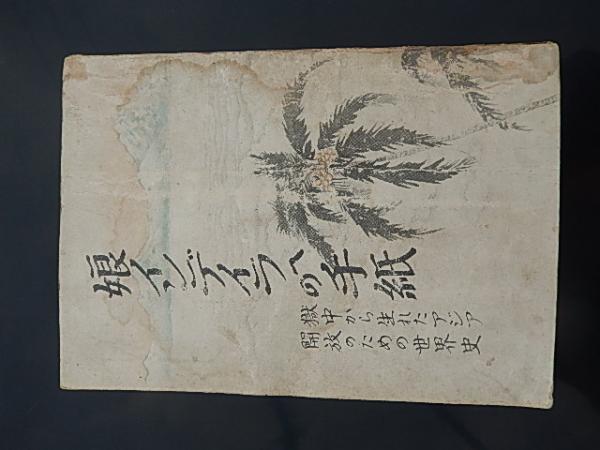 娘インディラへの手紙
獄中から生れたアジア
開放のための世界史